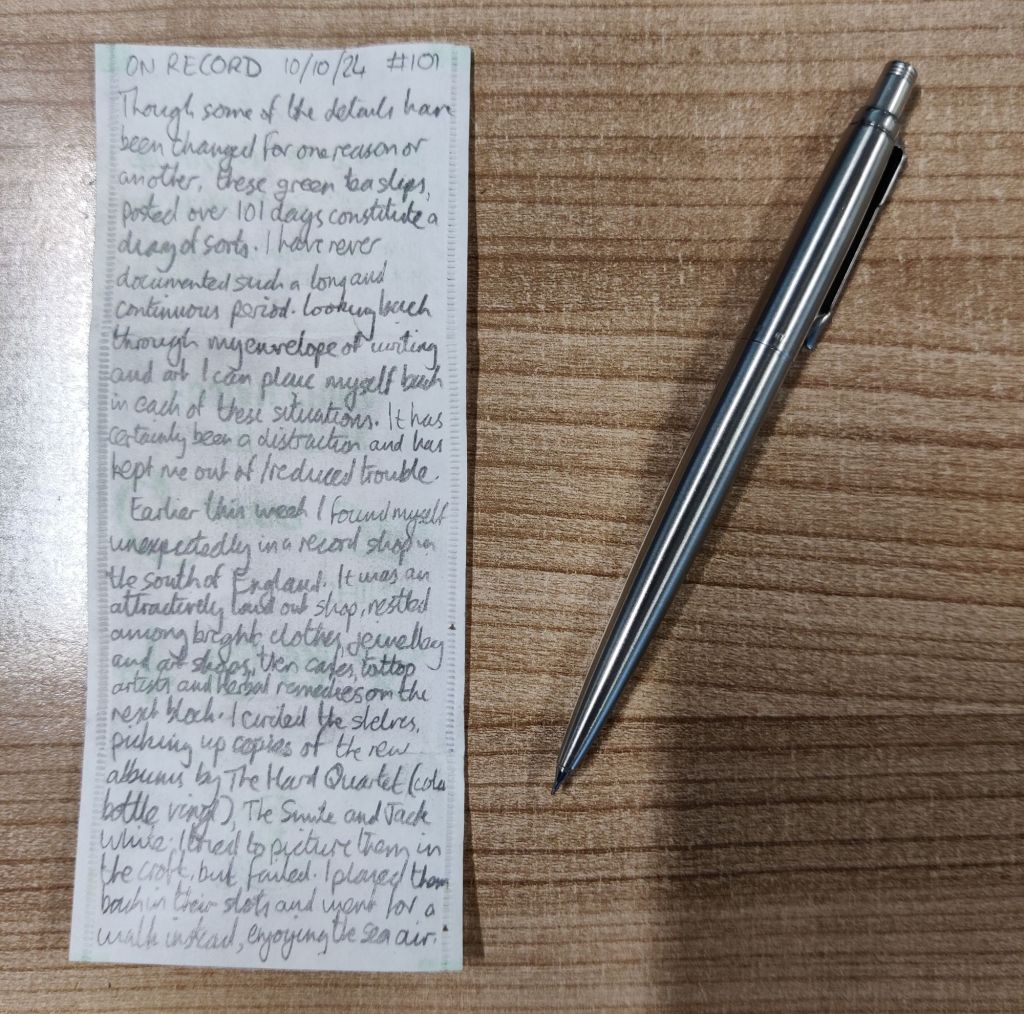 ON RECORD 10/10/24 #101
Though some of the details have
been changed for one reason or
another, these green tea slips,
posted over 101 days constitute a
diary of sorts. I have never
documented such a long and
continuous period. Looking back
through my envelope of writing
and art I can place myself back
in each of these situations. It has
certainly been a distraction and has
kept me out of/reduced trouble.
Earlier this week I found myself
unexpectedly in a record shop in
the south of England. It was an
attractively laid out shop, nestled
among bright clothes, jewellery
and art shops, then cafes, tattoo
artists and herbal remedies on the
next block. I circled the shelves,
picking up copies of the new
albums by The Hard Quartet (cola
bottle vinyl), The Smile and Jack
White. I tried to picture them in
the croft, but failed. I placed them
back in their slots and went for a
walk instead, enjoying the sea air.